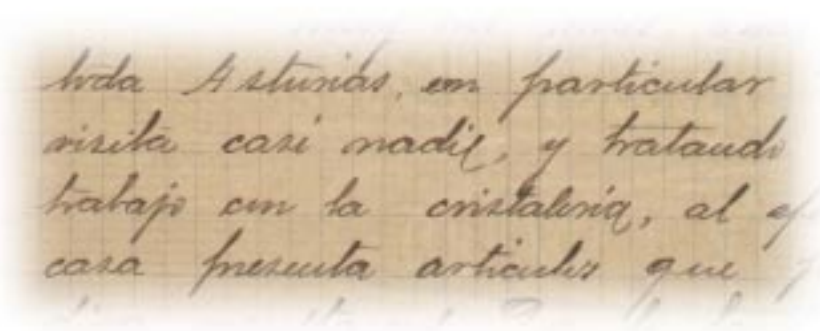 toda Asturias, en particular
visita casi nadie, y tratando
trabajo con la cristalería, al
casa presenta articulos que